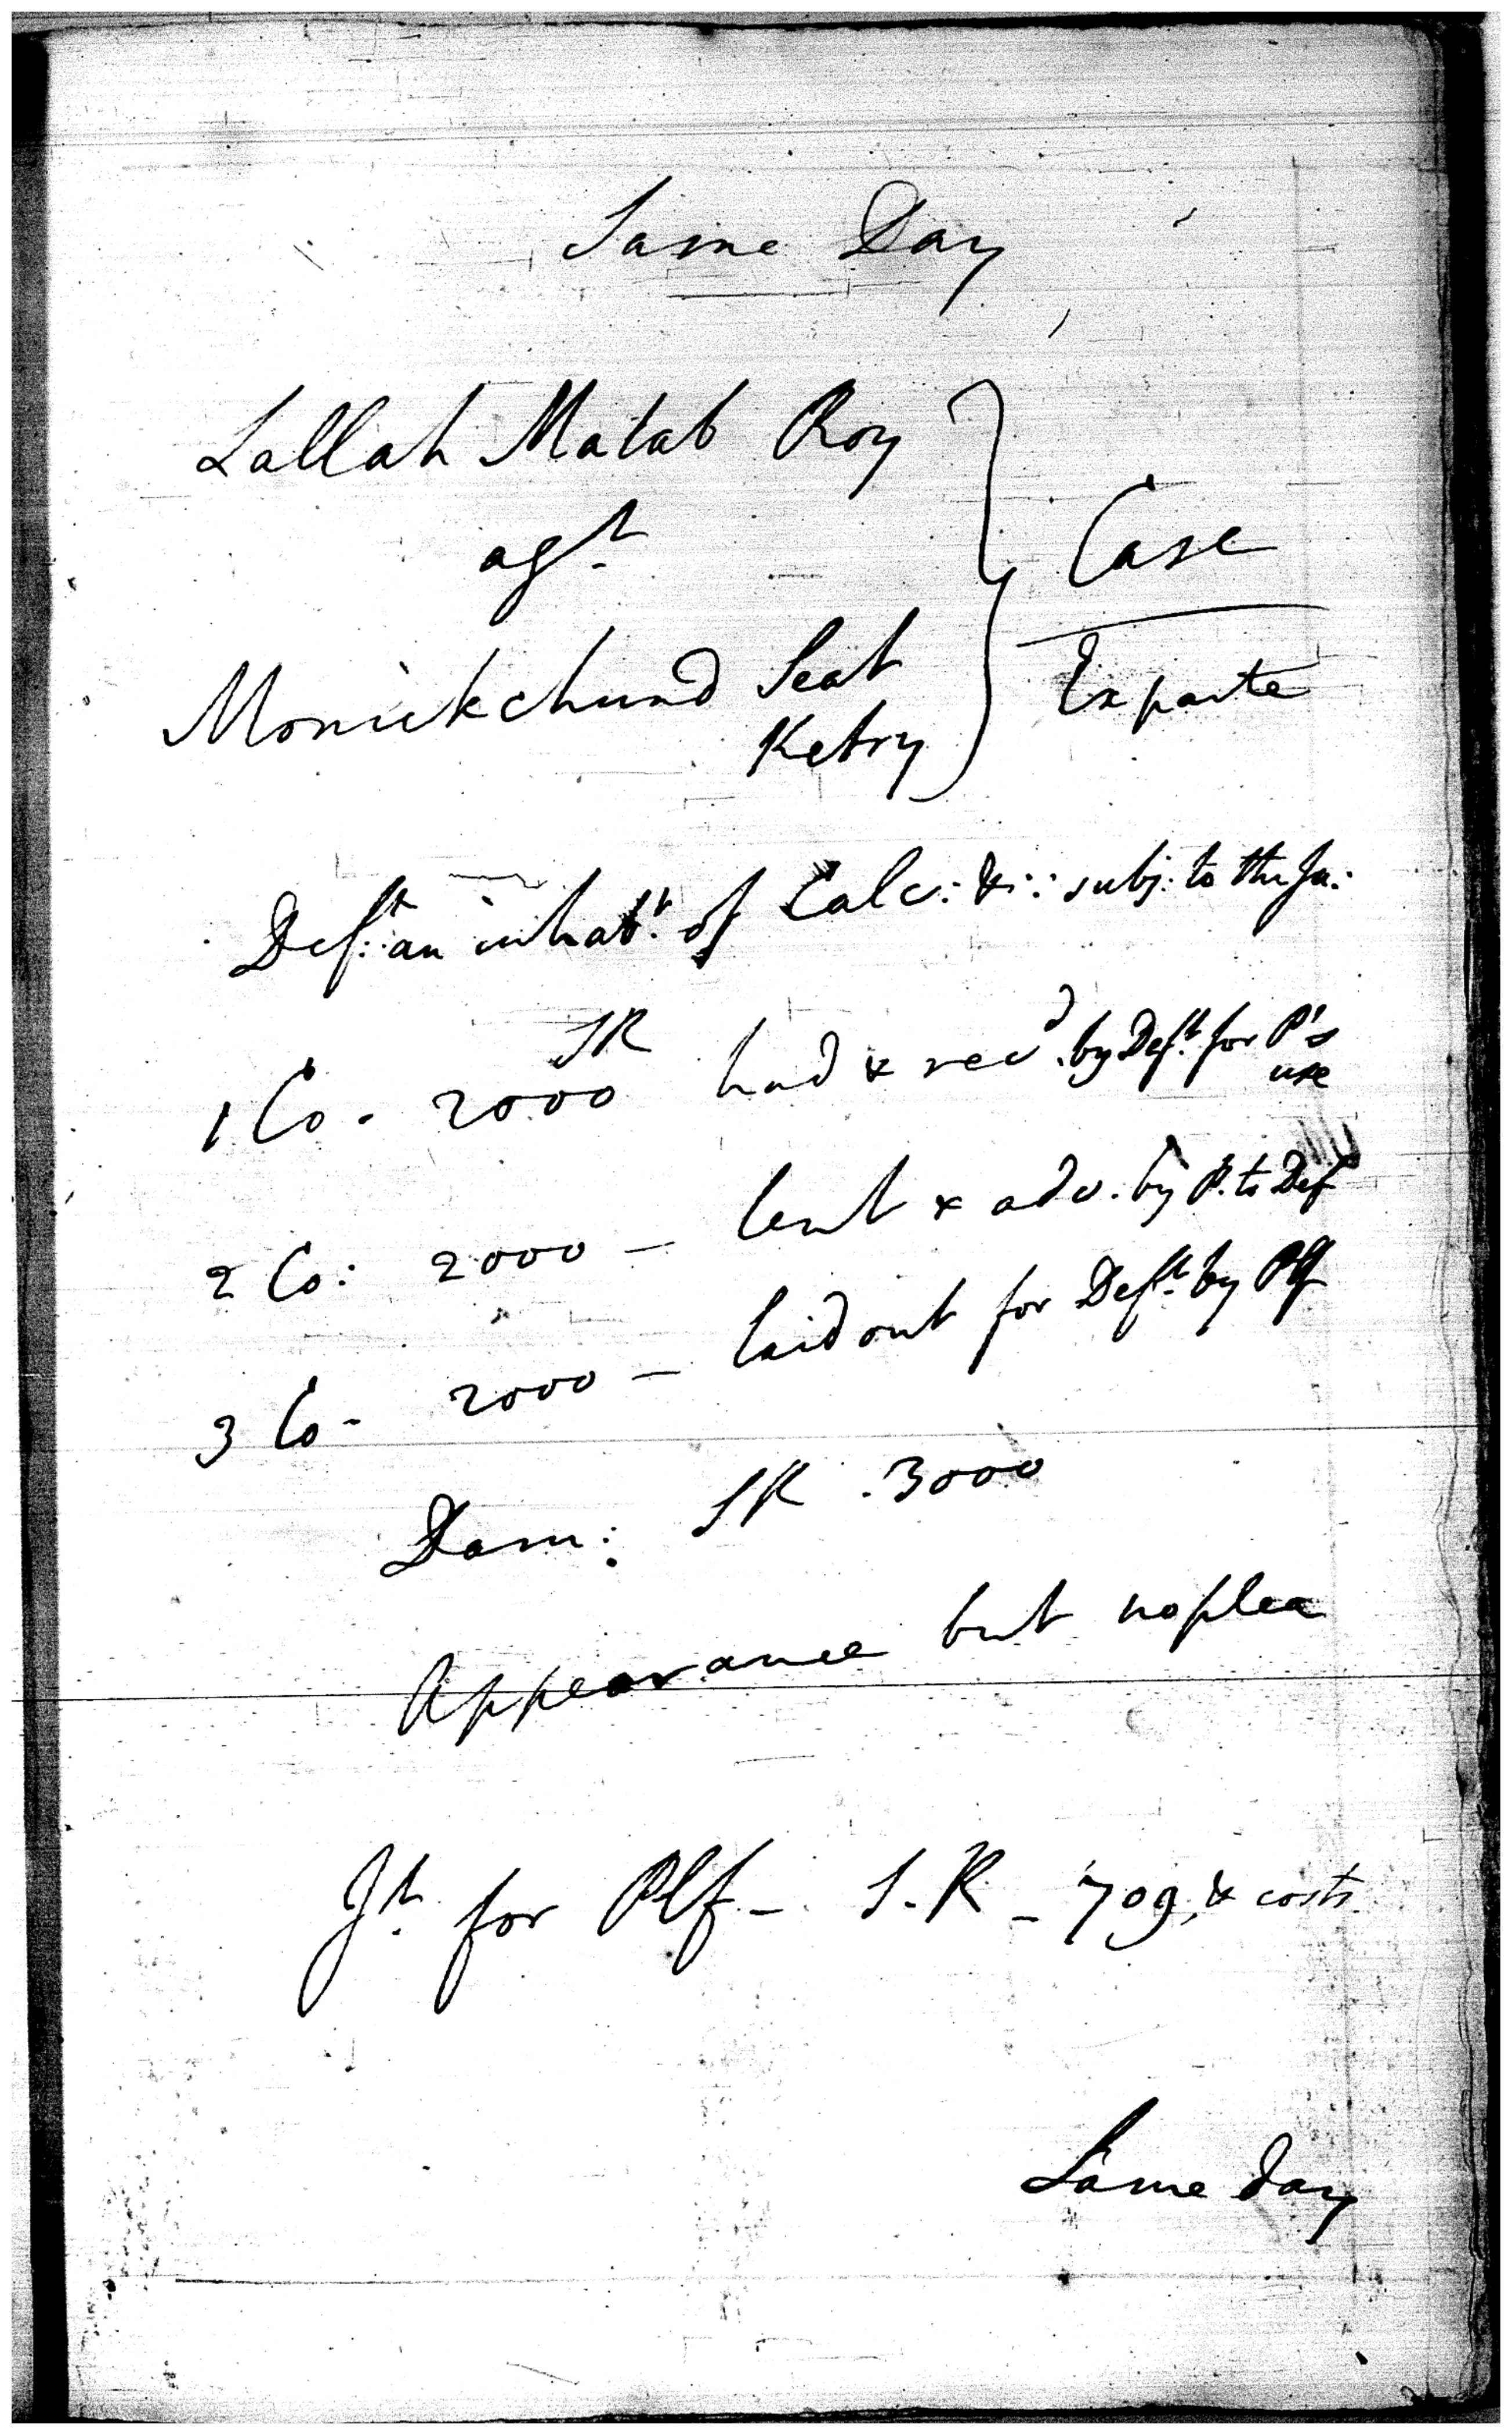 Same Day
Lallah Matab Roy
agt
Case
Monickchund Seat
Ketry
Exparte
Deft: an inhabt: of Calc: &:: subj: to the Ju:
1 Co - 2000 SR had & recd. by Deft. for P's
use
2 Co: 2000 - lent & adv. by P. to Def
3 Co - 2000 - laid out for Deft. by Plf
Dam: SR . 3000
Appearance but no plea
Jt. for Plf - S. R - 709, & costs.
Same day